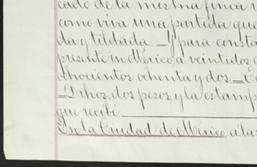 cado de la misma finca
como viva una partida que
da y tildada. Y para consta
presente en México a veintidos d
ochocientos ochenta y dos
Dchos. dos pesos, y la estamp
que recibí
En la Ciudad de México, a las